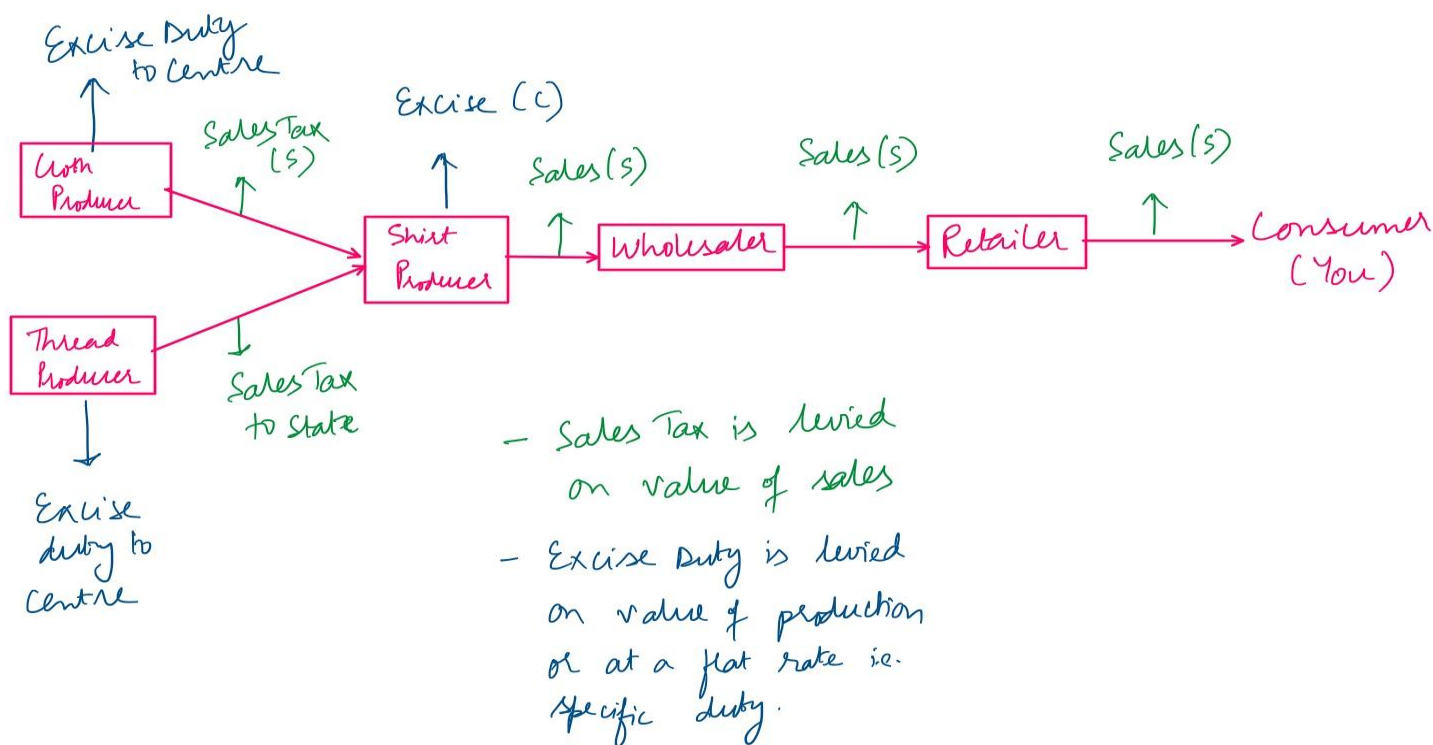 Excise Duty
to Centre
Cloth
Producer
Sales Tax
(S)
Excise (C)
Shirt
Producer
Sales(S)
Wholesaler
Sales(S)
Retailer
Sales(S)
Consumer
(You)
Thread
Producer
Sales Tax
to State
Excise
duty to
Centre
- Sales Tax is levied
on value of sales
- Excise Duty is levied
on value of production
or at a flat rate i.e.
specific duty.